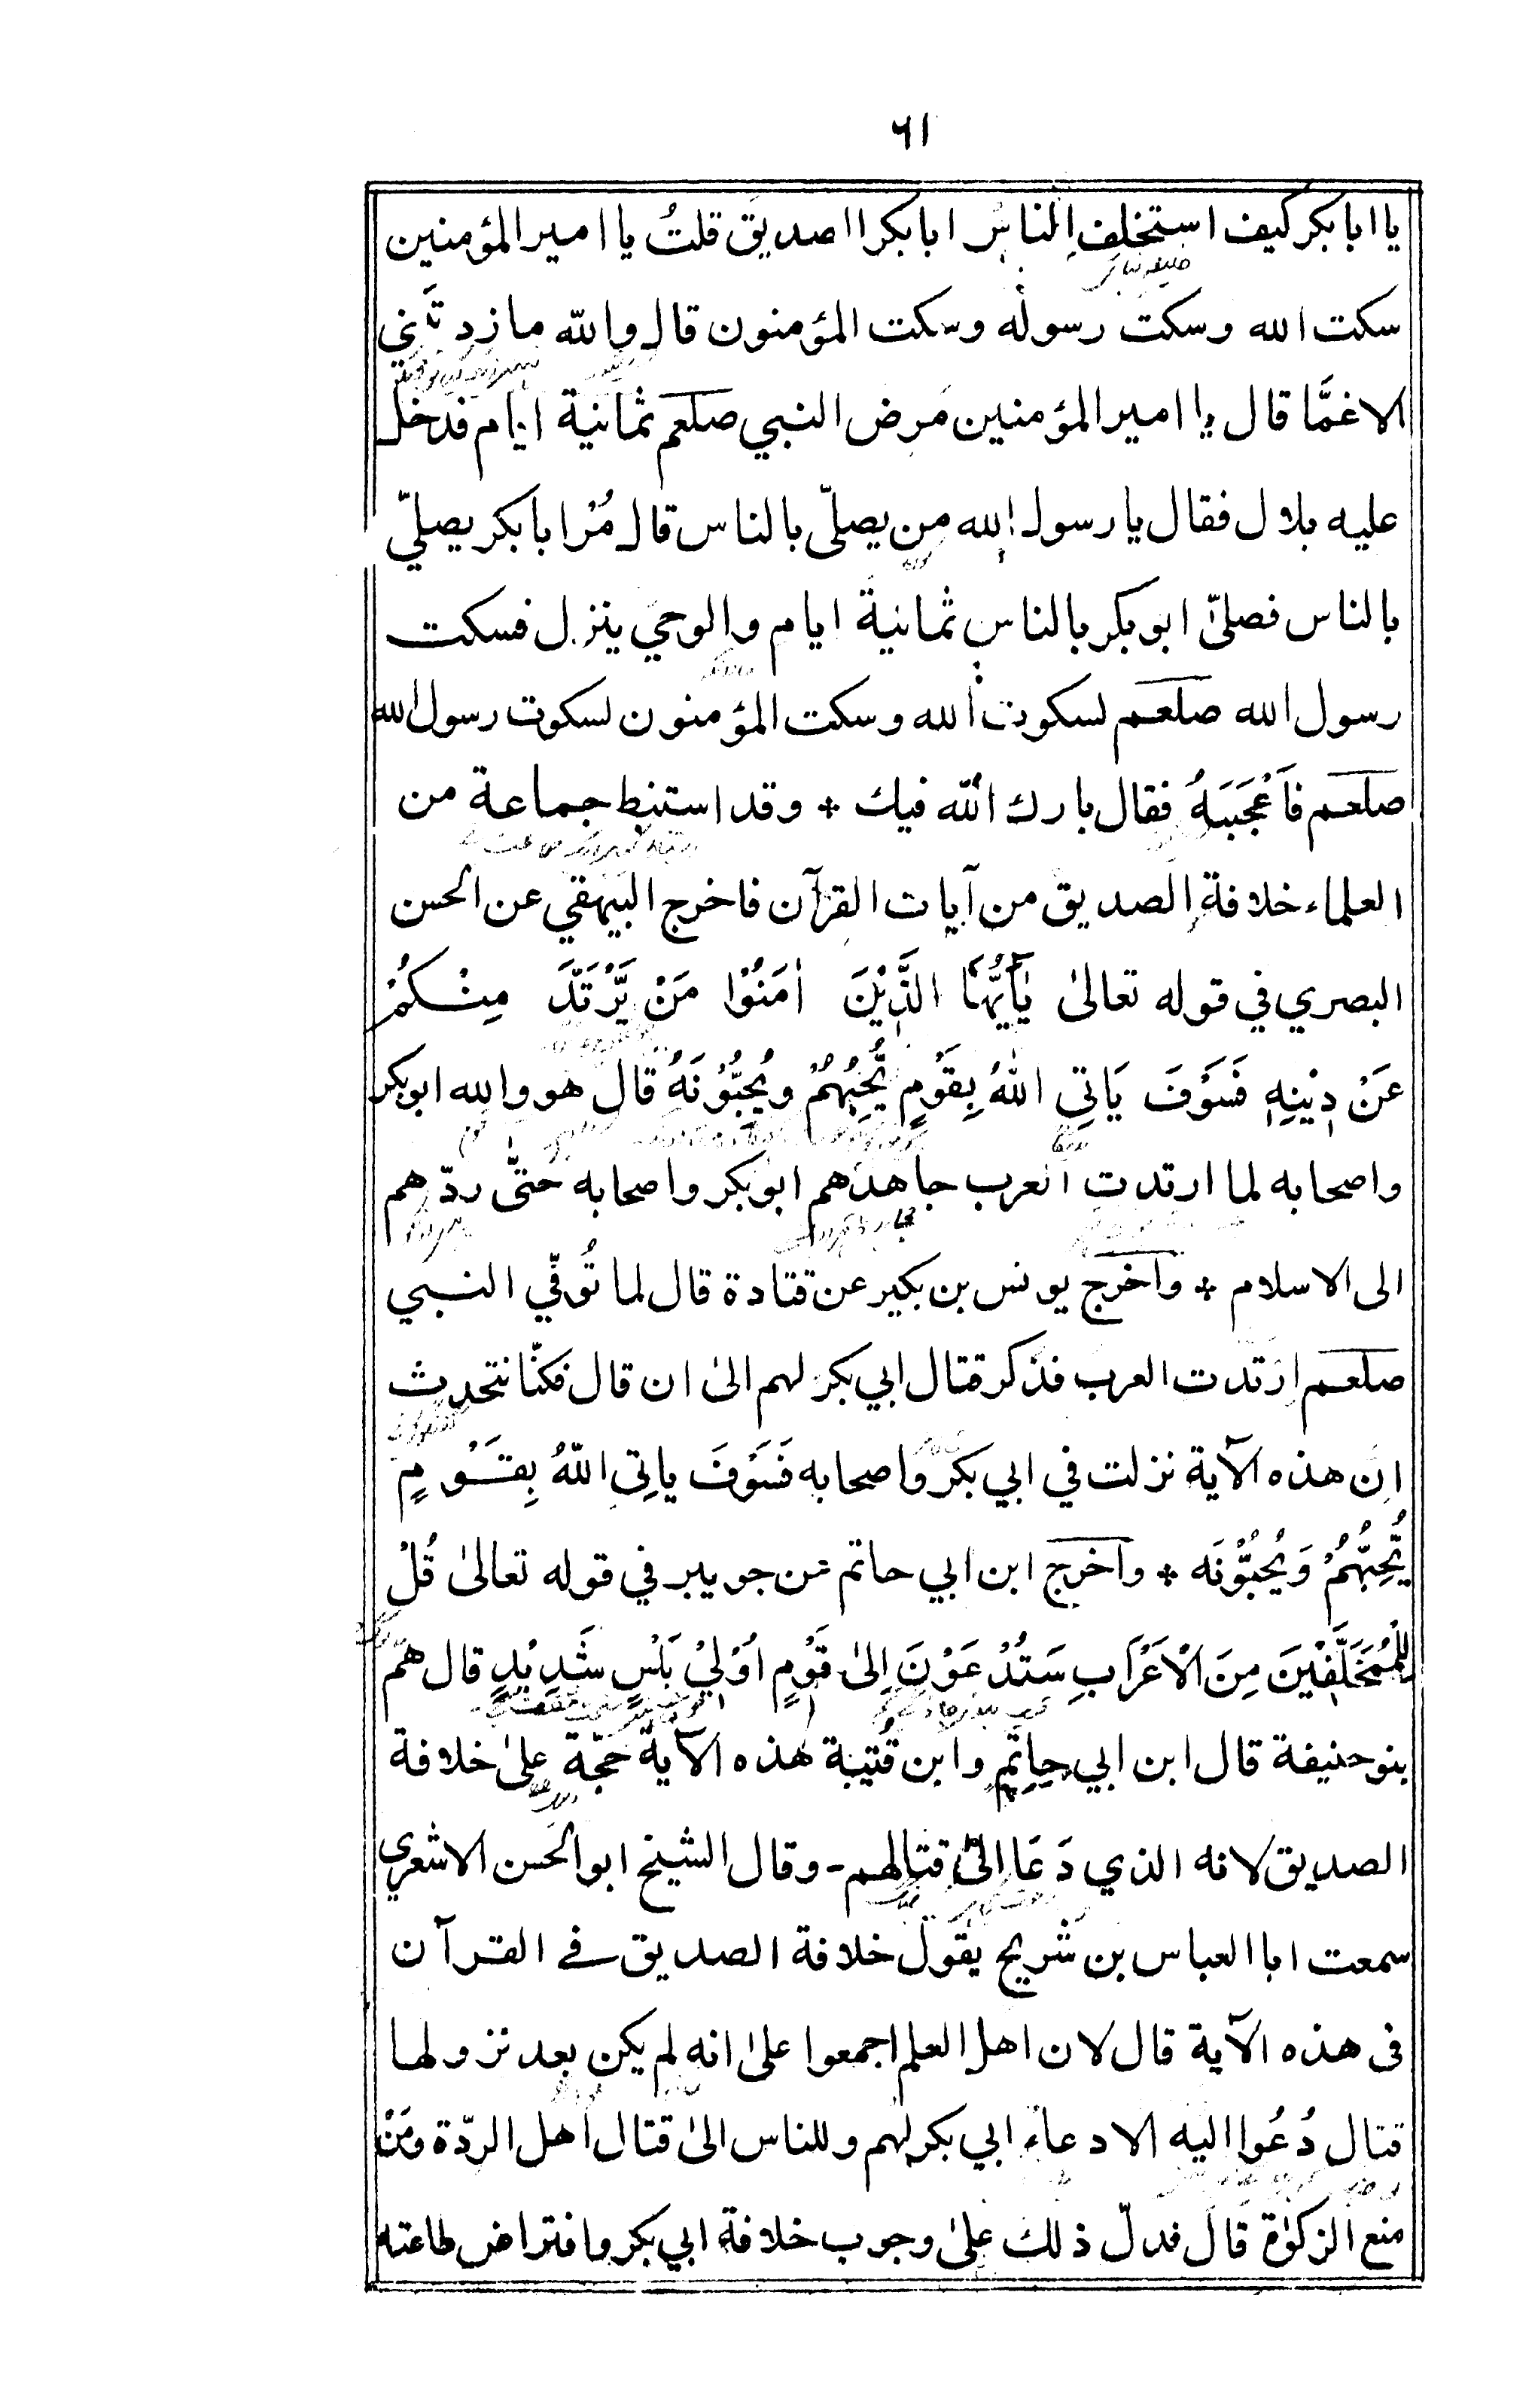 ٦١
يا ابا بكر كيف استخلف الناس ابا بكرا اصديق قلتُ يا امير المؤمنين
سكت الله وسكت رسوله وسكت المؤمنون قال والله ما زدتَني
الا غمًّا قال يا امير المؤمنين مَرِض النبي صلعم ثمانية ايام فدخل
عليه بلال فقال يا رسول الله من يصلّي بالناس قال مُرْ ابا بكر يصلّي
بالناس فصلّى ابو بكر بالناس ثمانية ايام والوحي ينزل فسكت
رسول الله صلعم لسكوت الله وسكت المؤمنون لسكوت رسول الله
صلعم فاَعْجَبَهُ فقال بارك الله فيك * وقد استنبط جماعة من
العلماء خلافة الصديق من آيات القرآن فاخرج البيهقي عن الحسن
البصري في قوله تعالىٰ يٰٓاَيُّهَا الَّذِيْنَ اٰمَنُوْا مَنْ يَّرْتَدَّ مِنْكُمْ
عَنْ دِيْنِهٖ فَسَوْفَ يَاتِي اللهُ بِقَوْمٍ يُّحِبُّهُمْ ويُحِبُّوْنَهُ قال هو والله ابو بكر
واصحابه لما ارتدت العرب جاهدهم ابو بكر واصحابه حتّى ردّهم
الى الاسلام * واخرج يونس بن بكير عن قتادة قال لما تُوفّي النبي
صلعم ارتدت العرب فذكر قتال ابي بكر لهم الىٰ ان قال فكنّا نتحدث
ان هذه الآية نزلت في ابي بكر واصحابه فَسَوْفَ ياتِي اللهُ بِقَوْمٍ
يُّحِبُّهُمْ وَيُحِبُّوْنَه * واخرج ابن ابي حاتم عن جويبر في قوله تعالىٰ قُلْ
لِلْمُخَلَّفِيْنَ مِنَ الْاَعْرَابِ سَتُدْعَوْنَ اِلىٰ قَوْمٍ اُوْلِيْ بَاْسٍ شَدِيْدٍ قال هم
بنو حنيفة قال ابن ابي حاتم وابن قُتيبة هذه الآية حجّة علىٰ خلافة
الصديق لانه الذي دَعَا الىٰ قتالهم - وقال الشيخ ابو الحسن الاشعري
سمعت ابا العباس بن شريح يقول خلافة الصديق في القرآن
في هذه الآية قال لان اهل العلم اجمعوا علىٰ انه لم يكن بعد نزولها
قتال دُعُوا اليه الا دعاء ابي بكر لهم وللناس الىٰ قتال اهل الردّة ومَنْ
منع الزكوٰة قال فدلّ ذلك علىٰ وجوب خلافة ابي بكر وافتراض طاعته